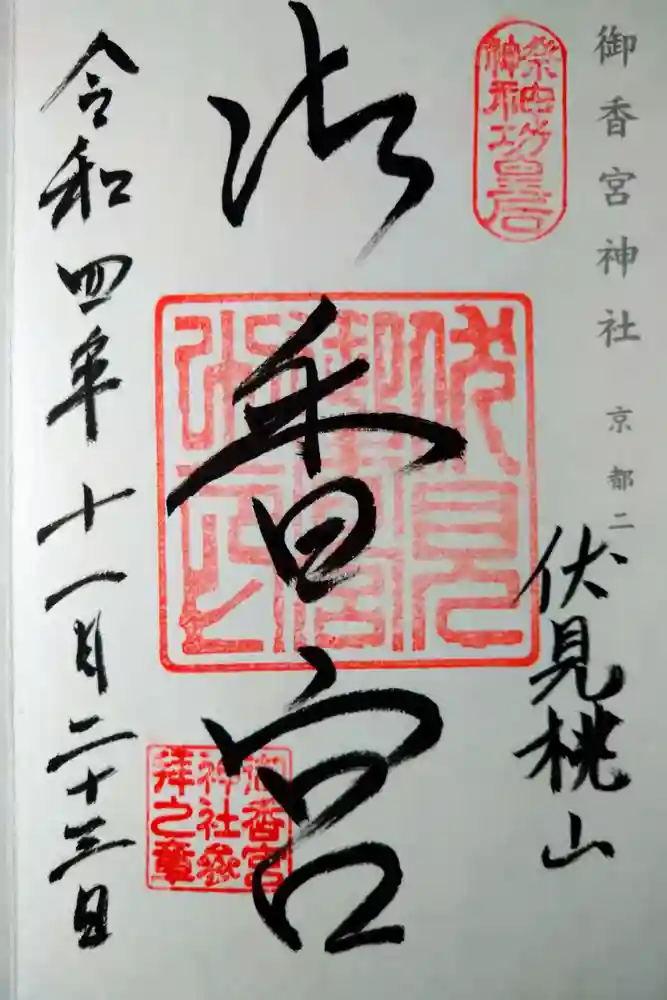 御香宮神社 京都二
伏見桃山
祭神
神功皇后
御香宮
伏見
御香宮
御香宮
神社参
拝之章
令和四年十一月二十三日